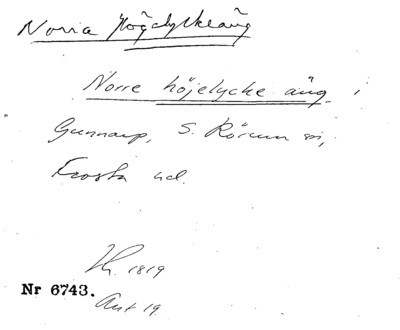 Norra Högelyckeäng
Norre höjelycke äng i
Gunnarp, S. Rörum sn,
Frosta hd.
Lh. 1819
Nr 6743.
Akt 19.